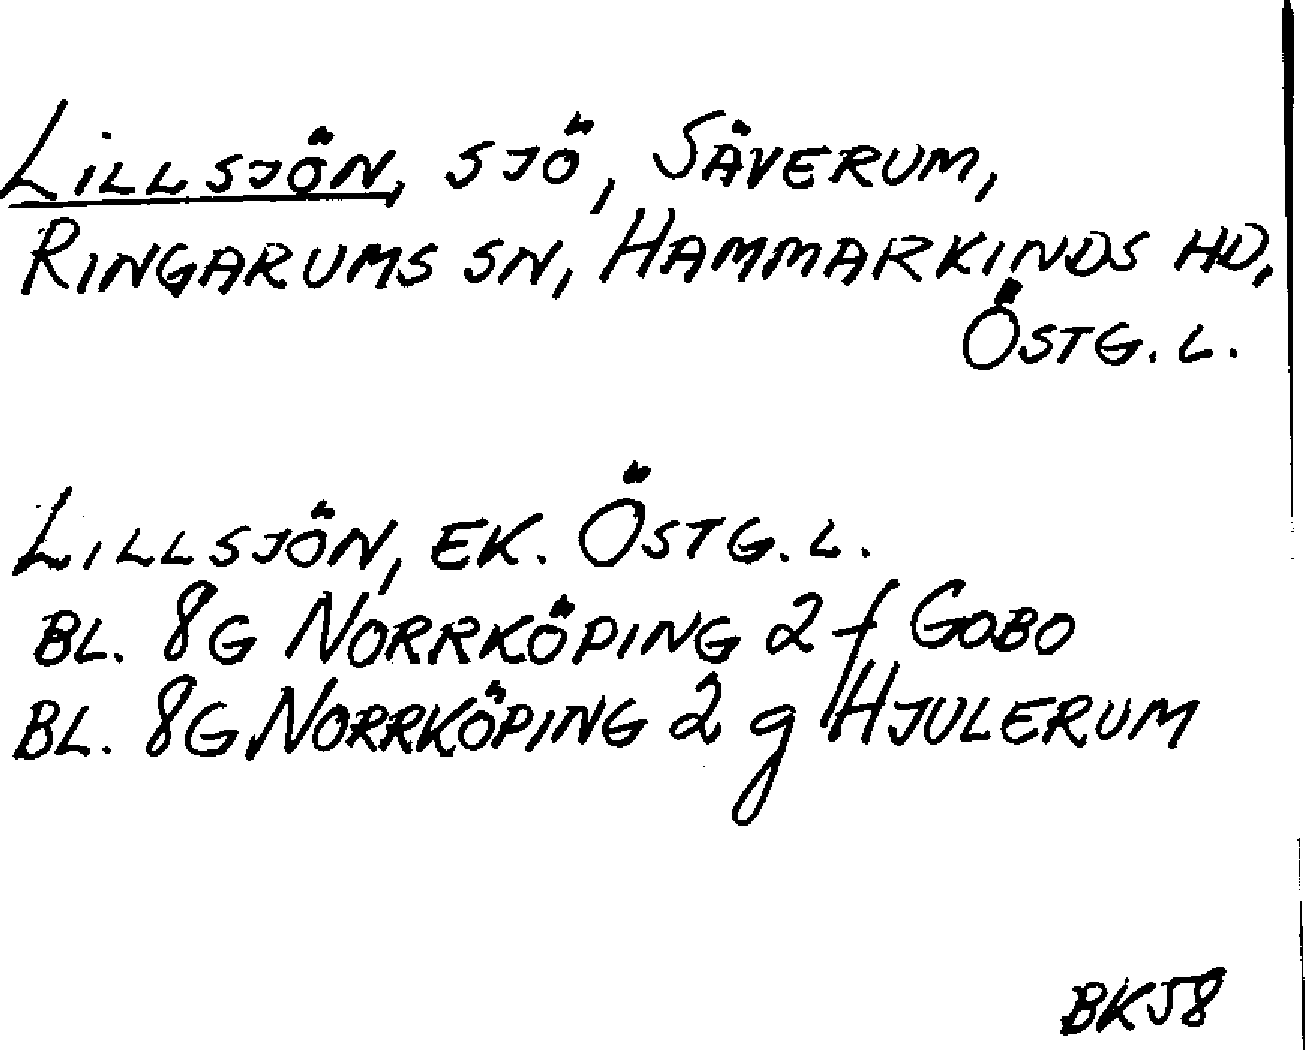 LILLSJÖN, SJÖ, SÄVERUM,
RINGARUMS SN, HAMMARKINDS HD,
ÖSTG. L.
LILLSJÖN, EK. ÖSTG. L.
BL. 8G NORRKÖPING 2 f GOBO
BL. 8G NORRKÖPING 2 g HJULERUM
BK58